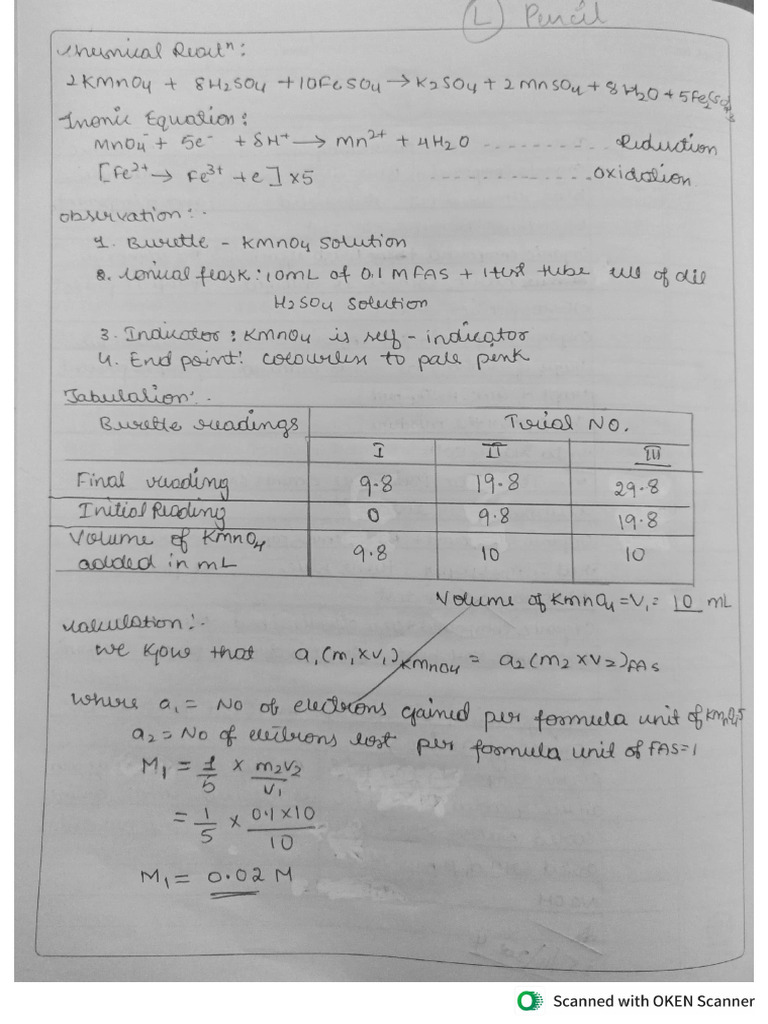 (L) Pencil
Chemical Reactn:
2KMnO4 + 8H2SO4 + 10FeSO4 → K2SO4 + 2MnSO4 + 8H2O + 5Fe2(SO4)3
Inonic Equation:
MnO4- + 5e- + 8H+ → Mn2+ + 4H2O ............ Reduction
[Fe2+ → Fe3+ + e] x5 ............ Oxidation
Observation:-
1. Burette - KMnO4 solution
2. Conical flask: 10mL of 0.1 M FAS + 1 test tube full of dil
H2SO4 solution
3. Indicator: KMnO4 is self-indicator
4. End point: colourless to pale pink
Tabulation:-
Burette readings Trial NO.
I II III
Final reading 9.8 19.8 29.8
Initial Reading 0 9.8 19.8
Volume of KMnO4
added in mL 9.8 10 10
Volume of KMnO4 = V1 = 10 mL
Calculation:-
We know that a1(M1 x V1)KMnO4 = a2(M2 x V2)FAS
where a1 = No of electrons gained per formula unit of KMnO4 5
a2 = No of electrons lost per formula unit of FAS = 1
M1 = 1/5 x M2V2/V1
= 1/5 x 0.1 x 10/10
M1 = 0.02 M
Scanned with OKEN Scanner